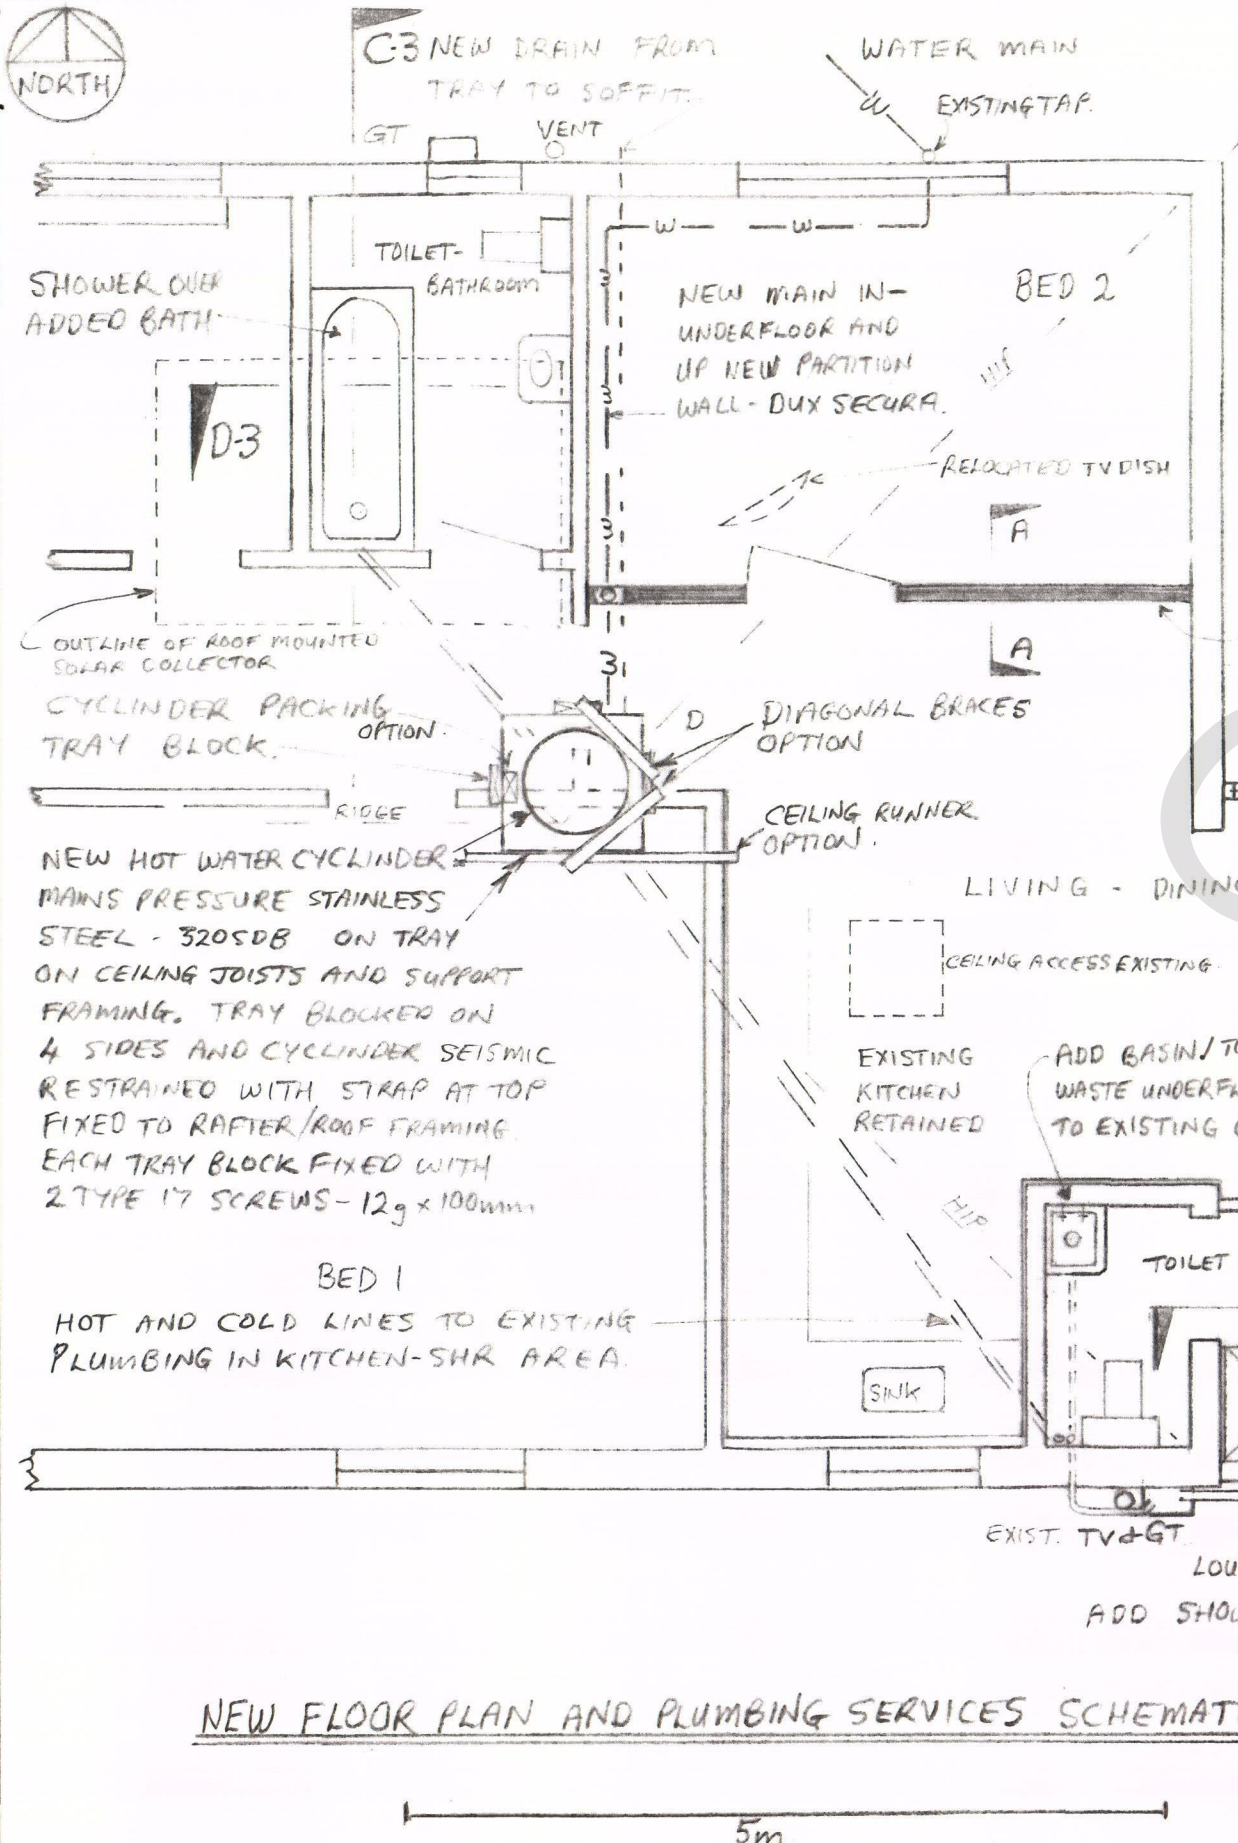 NORTH
C-3 NEW DRAIN FROM
TRAY TO SOFFIT.
WATER MAIN
W
EXISTING TAP.
GT
VENT
W W
TOILET-
BATHROOM
SHOWER OVER
ADDED BATH
W
BED 2
NEW MAIN IN-
UNDERFLOOR AND
UP NEW PARTITION
WALL - DUX SECURA.
HIP
W
D-3
RELOCATED TV DISH
A
W
OUTLINE OF ROOF MOUNTED
SOLAR COLLECTOR
A
CYCLINDER PACKING
OPTION.
TRAY BLOCK.
D
DIAGONAL BRACES
OPTION
RIDGE
CEILING RUNNER
OPTION.
NEW HOT WATER CYCLINDER
MAINS PRESSURE STAINLESS
STEEL - 320SDB ON TRAY
ON CEILING JOISTS AND SUPPORT
FRAMING. TRAY BLOCKED ON
4 SIDES AND CYCLINDER SEISMIC
RESTRAINED WITH STRAP AT TOP
FIXED TO RAFTER/ROOF FRAMING.
EACH TRAY BLOCK FIXED WITH
2 TYPE 17 SCREWS - 12g x 100mm
LIVING - DINING
CEILING ACCESS EXISTING.
EXISTING
KITCHEN
RETAINED
ADD BASIN/TO
WASTE UNDERFL
TO EXISTING
HIP
TOILET
BED 1
HOT AND COLD LINES TO EXISTING
PLUMBING IN KITCHEN-SHR AREA.
SINK
EXIST. TV & GT
LOU
ADD SHOW
NEW FLOOR PLAN AND PLUMBING SERVICES SCHEMATI
5m